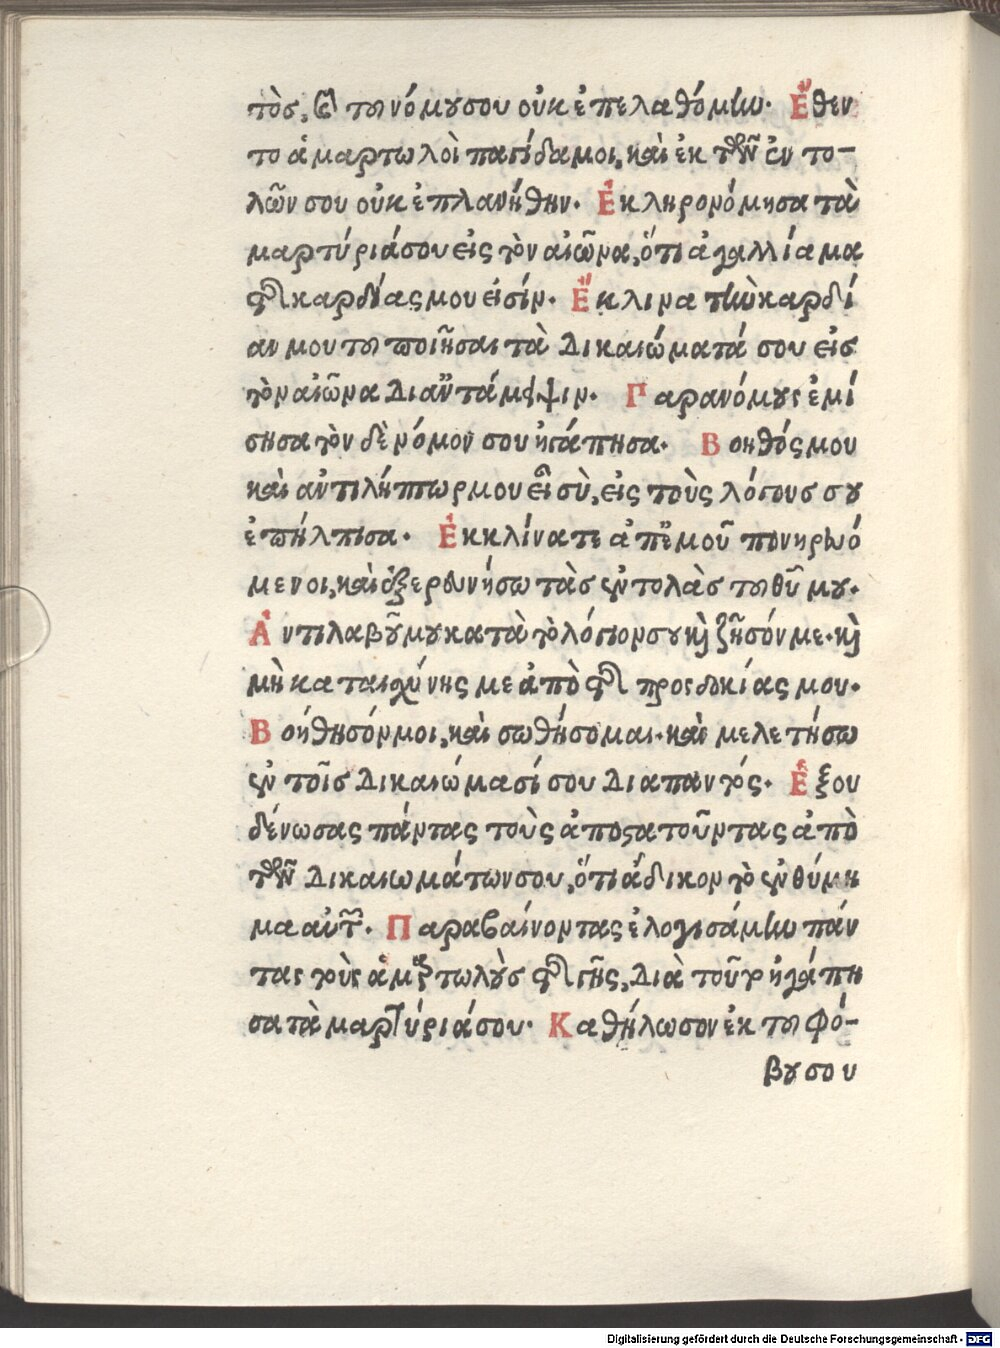 τὸσ, καὶ τοῦ νόμου σου οὐκ ἐπελαθόμην· Ἔθεν
το ἁμαρτωλοὶ παγίδα μοι, καὶ ἐκ τῶν ἐντο-
λῶν σου οὐκ ἐπλανήθην· Ἐκληρονόμησα τὰ
μαρτύριά σου εἰς τὸν αἰῶνα, ὅτι ἀγαλλίαμα
τῆς καρδίας μου εἰσίν· Ἔκλινα τὴν καρδί
αν μου τοῦ ποιῆσαι τὰ δικαιώματά σου εἰσ
τὸν αἰῶνα δι ἀντάμειψιν· Παρανόμους ἐμί
σησα τὸν δὲ νόμον σου ἠγάπησα· Βοηθός μου
καὶ ἀντιλήπτωρ μου εἶ σὺ, εἰς τοὺς λόγουσ σου
ἐπήλπισα· Ἐκκλίνατε ἀπ ἐμοῦ πονηρευό
μενοι, καὶ ἐξερευνήσω τὰσ ἐντολὰσ τοῦ θῦ μου·
Ἀντιλαβοῦ μου κατὰ τὸ λόγιον σου καὶ ζῆσόν με· καὶ
μὴ καταισχύνης με ἀπὸ τῆς προσδοκίας μου·
Βοήθησόν μοι, καὶ σωθήσομαι· καὶ μελετήσω
ἐν τοῖσ δικαιώμασί σου διαπαντός· Ἐξου
δένωσας πάντας τοὺς ἀποστατοῦντας ἀπὸ
τῶν δικαιωμάτων σου, ὅτι ἄδικον τὸ ἐνθύμη
μα αὐτῶν· Παραβαίνοντας ἐλογισάμην πάν
τας τοὺς ἁμαρτωλοὺσ τῆς γῆς, διὰ τοῦτο ἠγάπη
σα τὰ μαρτύριά σου· Καθήλωσον ἐκ τοῦ φό-
βου σου
Digitalisierung gefördert durch die Deutsche Forschungsgemeinschaft - DFG